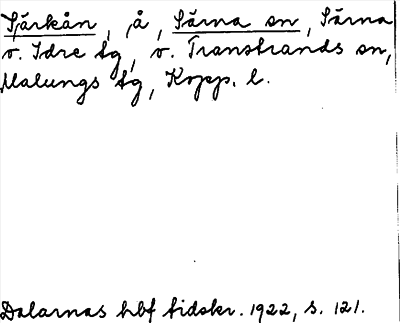 Tjärkån, å, Särna sn, Särna
o. Idre tg, o. Transtrands sn,
Malungs tg, Kopp. l.
Dalarnas hbf tidskr. 1922, s. 121.